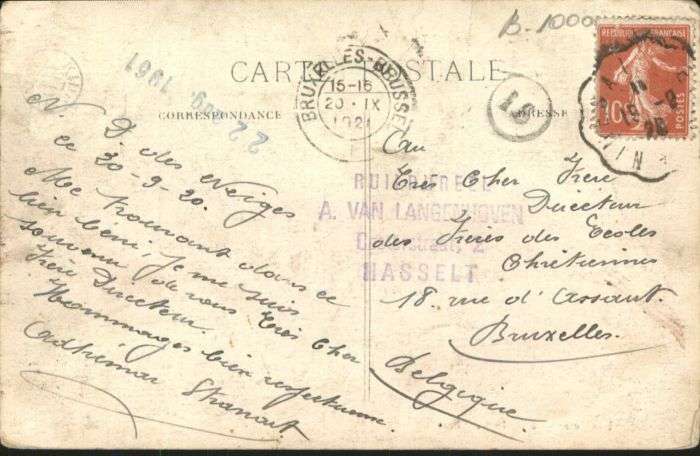 B. 1000
CARTE POSTALE
CORRESPONDANCE
ADRESSE
BRUXELLES-BRUSSEL
15-16
20 · IX
192
22 1961
16
REPUBLIQUE FRANÇAISE
10
POSTES
N. D des Neiges
ce 20-9-20.
Me trouvant dans ce
lieu béni, je me suis
souvenu de vous Très Cher
Frère Directeur.
Hommages bien respectueux
Adhémar
Au
Très Cher Frère
Directeur
des Frères des Ecoles
Chrétiennes
18. rue d'Assaut.
Bruxelles.
Belgique.
A. VAN LANGENHOVEN
HASSELT